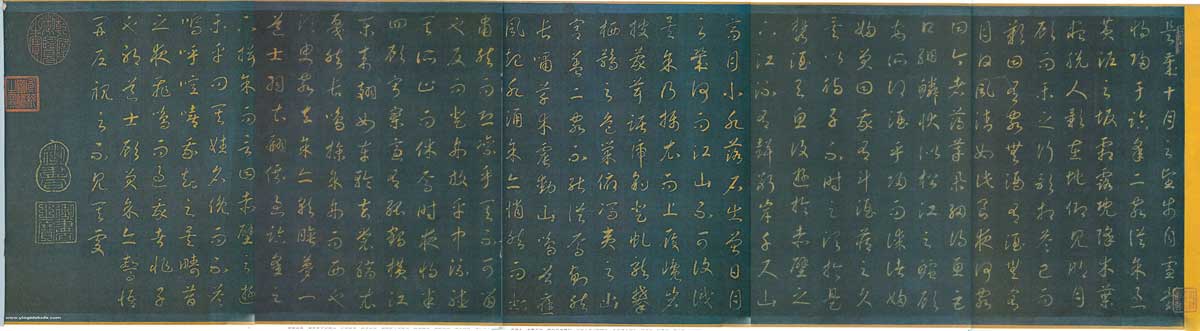 是歲十月之望步自雪堂
將歸于臨皋二客從余過
黃泥之坂霜露既降木葉
盡脫人影在地仰見明月
顧而樂之行歌相答已而
歎曰有客無酒有酒無肴
月白風清如此良夜何客
曰今者薄暮舉網得魚巨
口細鱗狀似松江之鱸顧
安所得酒乎歸而謀諸婦
婦曰我有斗酒藏之久
矣以待子不時之須於是
攜酒與魚復遊於赤壁之
下江流有聲斷岸千尺山
高月小水落石出曾日月
之幾何而江山不可復識
矣余乃攝衣而上履巉岩
披蒙茸踞虎豹登虬龍攀
棲鶻之危巢俯馮夷之幽
宮蓋二客不能從焉劃然
長嘯草木震動山鳴谷應
風起水涌余亦悄然而悲
肅然而恐凜乎其不可留
也反而登舟放乎中流聽
其所止而休焉時夜將半
四顧寂寥適有孤鶴橫江
東來翅如車輪玄裳縞衣
戛然長鳴掠余舟而西也
須臾客去余亦就睡夢一
道士羽衣翩躚過臨皋之
下揖余而言曰赤壁之遊
樂乎問其姓名俛而不答
嗚呼噫嘻我知之矣疇昔
之夜飛鳴而過我者非子
也耶道士顧笑余亦驚悟
開戶視之不見其處